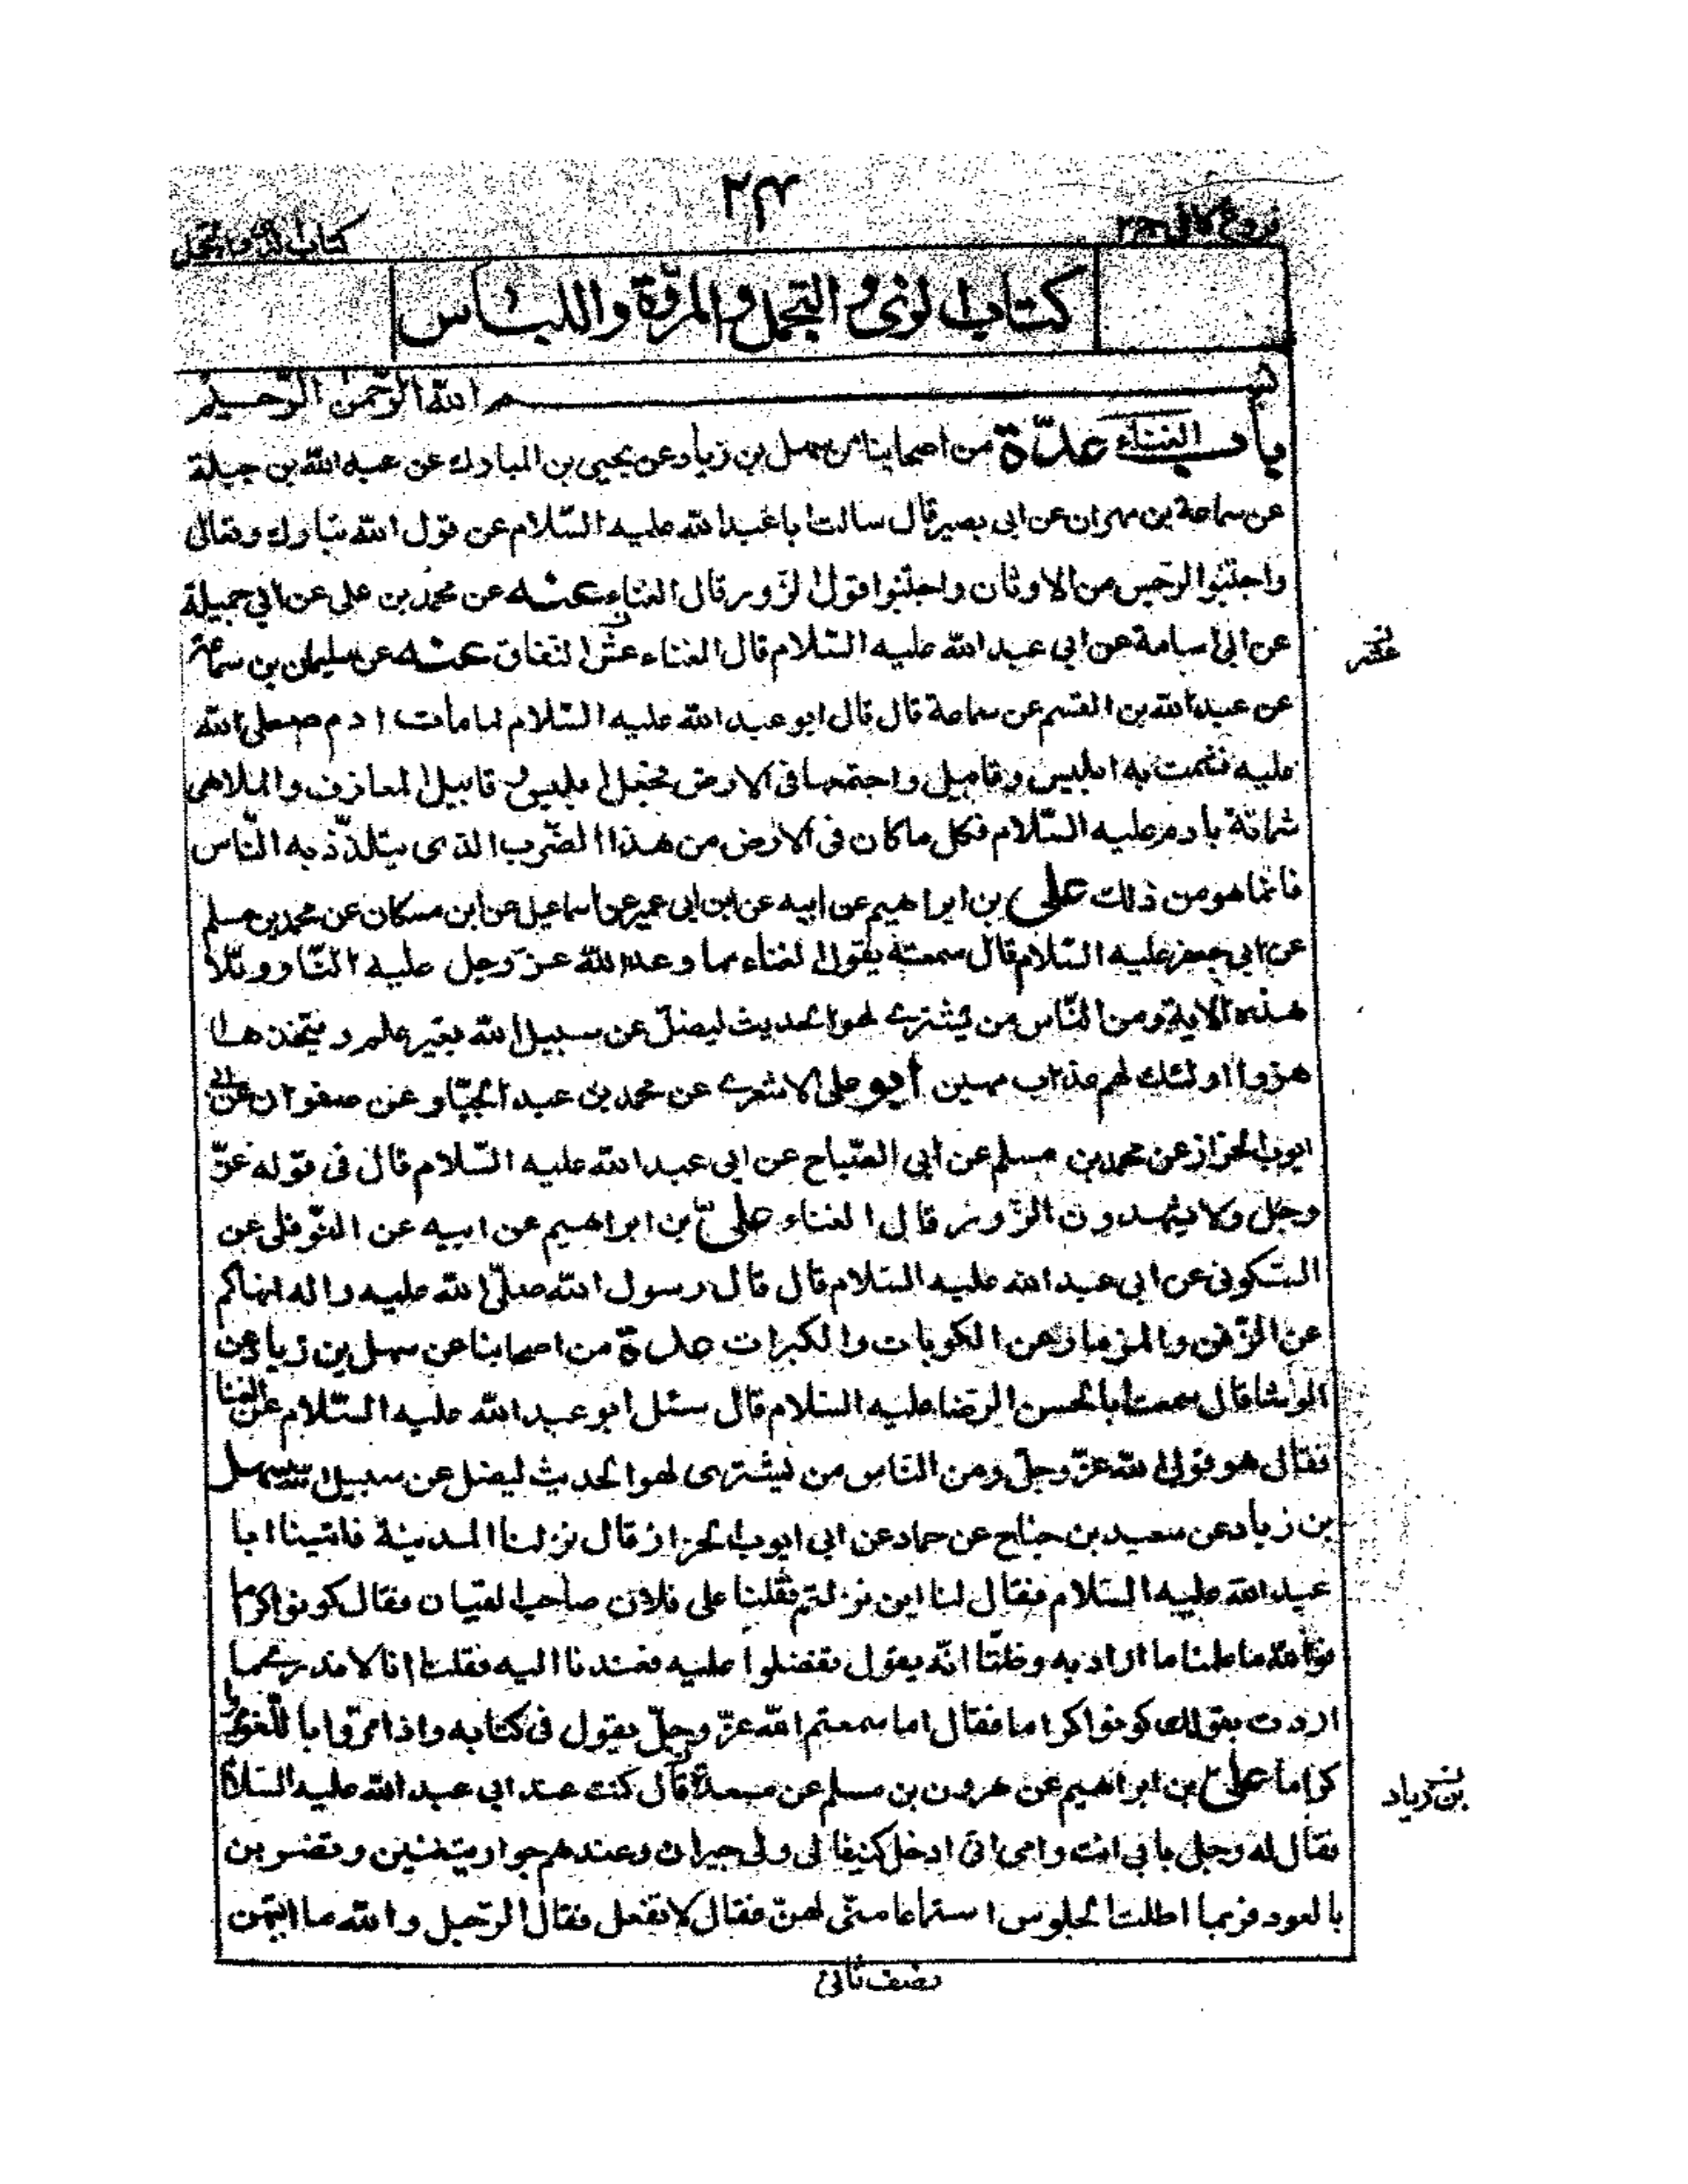 ٢٤
فروع كافى ج٢
كتاب الزى والتجمل
كتاب الزى و التجمل والمروّة واللباس
بسم الله الرّحمن الرّحيم
باب الغناء عدّة من اصحابنا عن سهل بن زياد عن يحيى بن المبارك عن عبد الله بن جبلة
عن سماعة بن مهران عن ابى بصير قال سالت ابا عبد الله عليه السّلام عن قول الله تبارك وتعالى
واجتنبوا الرجس من الاوثان واجتنبوا قول الزور قال الغناء عنه عن محمد بن على عن ابي جميلة
عن ابى اسامة عن ابى عبد الله عليه السّلام قال الغناء عش النفاق عنه عن سليمان بن سماعة
عشر
عن عبد الله بن القسم عن سماعة قال قال ابو عبد الله عليه السّلام لما مات ادم صلى الله
عليه فشمت به ابليس وقابيل واجتمعا فى الارض فجعل ابليس و قابيل المعازف والملاهى
شماتة بادم عليه السّلام فكل ما كان فى الارض من هذا الضّرب الذى يتلذّذ به النّاس
فانما هو من ذلك على بن ابراهيم عن ابيه عن ابن ابى عمير عن اسماعيل عن ابن مسكان عن محمد بن مسلم
عن ابى جعفر عليه السّلام قال سمعته يقول الغناء مما وعد الله عزّ وجل عليه النّار وتلا
هذه الاية ومن النّاس من يشترى لهو الحديث ليضلّ عن سبيل الله بغير علم ويتخذها
هزوا اولئك لهم عذاب مهين ابو على الاشعرى عن محمد بن عبد الجبّار عن صفوان عن ابى
ايوب الخزاز عن محمد بن مسلم عن أبى الصّباح عن ابى عبد الله عليه السّلام قال فى قوله عزّ
وجل ولا يشهدون الزّور قال الغناء علىّ بن ابراهيم عن ابيه عن النّوفلى عن
السّكونى عن ابى عبد الله عليه السّلام قال قال رسول الله صلّى الله عليه واله انهاكم
عن الزّفن والمزمار وعن الكوبات والكبرات عدة من اصحابنا عن سهل بن زياد عن
الوشا قال سمعت ابا الحسن الرّضا عليه السّلام قال سئل ابو عبد الله عليه السّلام عن الغنا
فقال هو قول الله عزّ وجلّ ومن النّاس من يشترى لهو الحديث ليضل عن سبيل الله سهل
بن زياد عن سعيد بن جناح عن حماد عن ابى ايوب الخزاز قال نزلنا المدينة فاتينا ابا
عبد الله عليه السّلام فقال لنا اين نزلتم فقلنا على فلان صاحب القيان فقال كونوا كراما
فوالله ما علمنا ما اراد به وظنّنا انّه يقول تفضلوا عليه فعدنا اليه فقلنا انا لا ندرى ما
اردت بقولك كونوا كراما فقال اما سمعتم الله عزّ وجلّ يقول فى كتابه واذا مرّوا باللّغو مروا
كراما علىّ بن ابراهيم عن هرون بن مسلم عن مسعدة قال كنت عند ابى عبد الله عليه السّلام
بن زياد
فقال له رجل بابى انت وامى انى ادخل كنيفا لى ولى جيران وعندهم جوار يتغنين ويضربن
بالعود فربما اطلت الجلوس استماعا منّى لهنّ فقال لا تفعل فقال الرّجل والله ما اتيهن
نصف ثانى